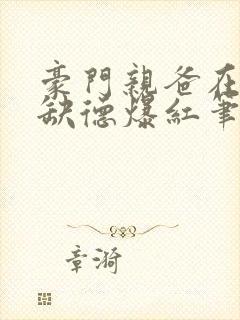 豪門親爸在
缺德爆紅筆
章漪